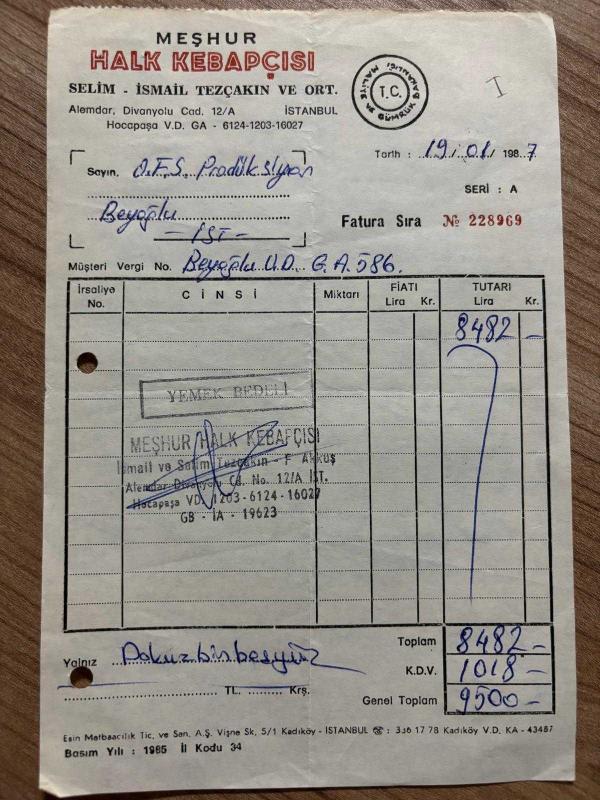 MEŞHUR
HALK KEBAPÇISI
SELİM - İSMAİL TEZÇAKIN VE ORT.
Alemdar, Divanyolu Cad. 12/A İSTANBUL
Hocapaşa V.D. GA - 6124-1203-16027
T.C.
MALİYE VE GÜMRÜK BAKANLIĞI
Tarih : 19/01/1987
SERİ : A
Sayın. O.F.S. Prodüksiyon
Beyoğlu
- İST -
Fatura Sıra № 228969
Müşteri Vergi No. Beyoğlu V.D. G.A. 586.
İrsaliye No. CİNSİ Miktarı FİATI Lira Kr. TUTARI Lira Kr.
8482 -
YEMEK BEDELİ
MEŞHUR HALK KEBAPÇISI
İsmail ve Selim Tezçakın - F AKKUŞ
Alemdar Divanyolu Cd. No. 12/A İST.
Hocapaşa VD. 1203-6124-16027
GB - İA - 19623
Toplam 8482 -
Yalnız Dokuzbinbeşyüz
K.D.V. 1018 -
TL. Krş.
Genel Toplam 9500 -
Esin Matbaacılık Tic. ve San. A.Ş. Vişne Sk. 5/1 Kadıköy - İSTANBUL ☎ : 336 17 78 Kadıköy V.D. KA - 43487
Basım Yılı : 1985 İl Kodu 34